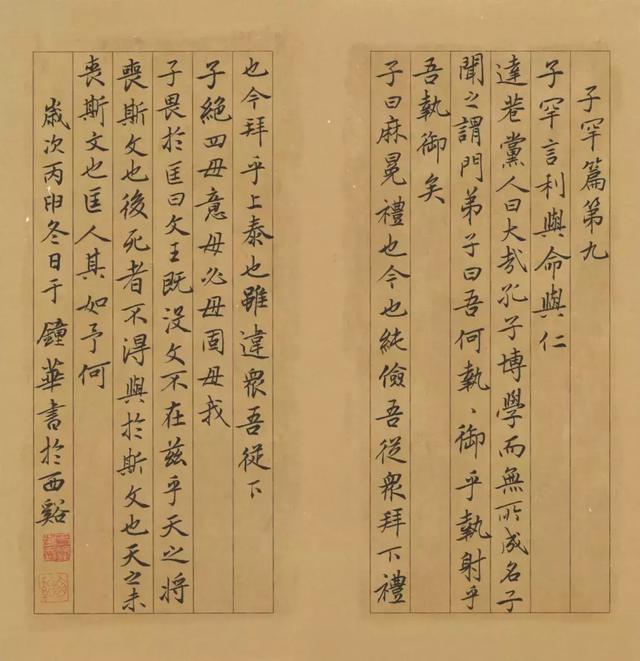 子罕篇第九
子罕言利與命與仁
達巷黨人曰大哉孔子博學而無所成名子
聞之謂門弟子曰吾何執、御乎執射乎
吾執御矣
子曰麻冕禮也今也純儉吾從衆拜下禮
也今拜乎上泰也雖違衆吾從下
子絕四毋意毋必毋固毋我
子畏於匡曰文王既没文不在茲乎天之將
喪斯文也後死者不得與於斯文也天之未
喪斯文也匡人其如予何
歲次丙申冬日于鐘華書於西谿